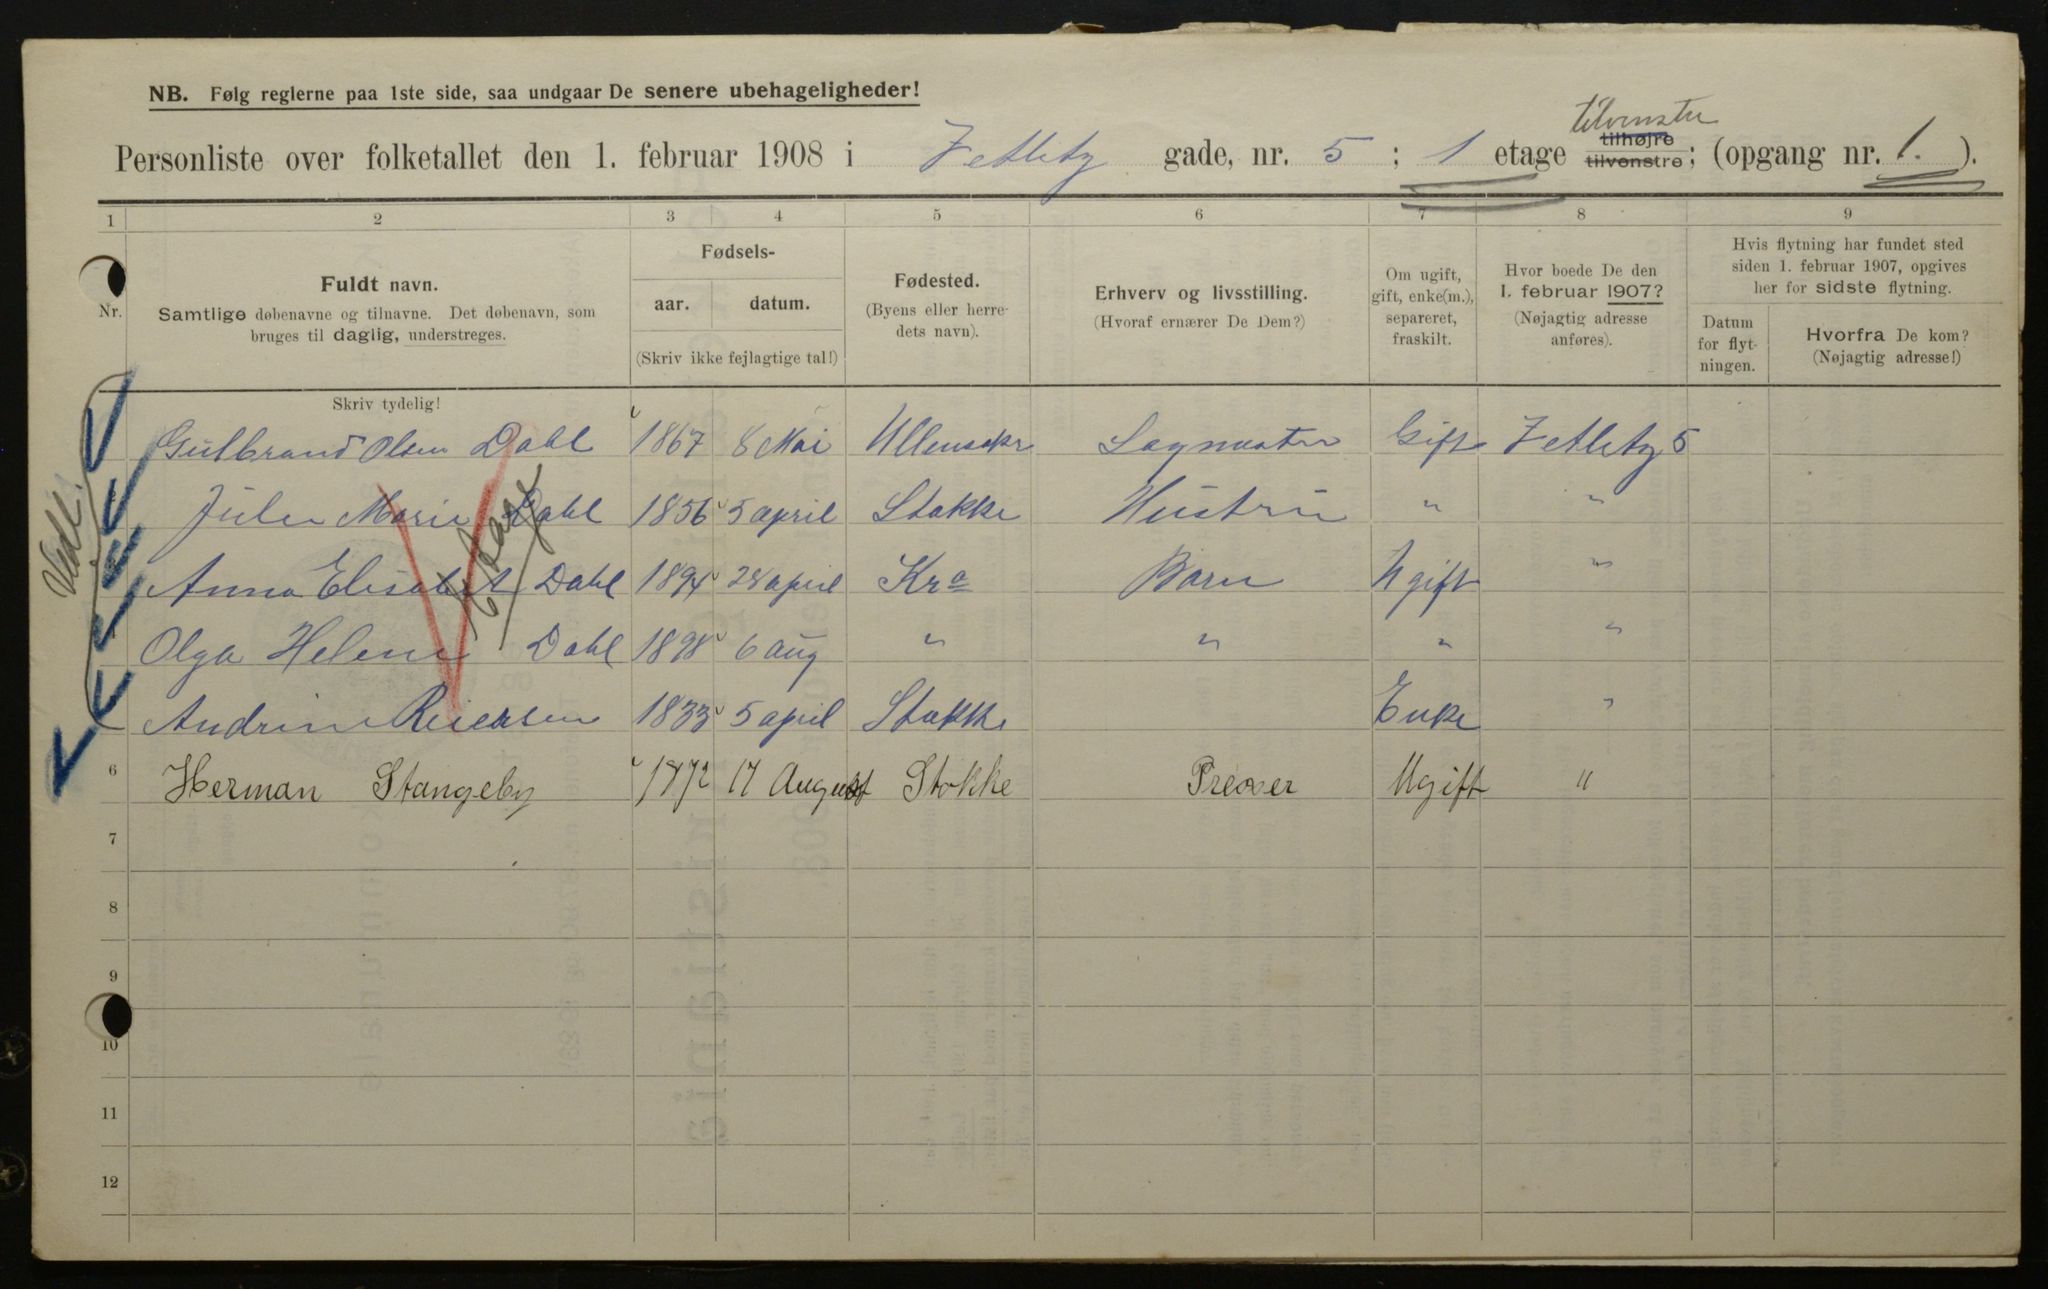 NB. Følg reglerne paa 1ste side, saa undgaar De senere ubehageligheder!
tilvenstre
Personliste over folketallet den 1. februar 1908 i Zetlitz gade, nr. 5 ; 1 etage tilhøjre tilvenstre; (opgang nr. 1. ).
1 2 3 4 5 6 7 8 9
Nr.
Fuldt navn.
Samtlige døbenavne og tilnavne. Det døbenavn, som
bruges til daglig, understreges.
Fødsels-
aar. datum.
(Skriv ikke fejlagtige tal!)
Fødested.
(Byens eller herre-
dets navn).
Erhverv og livsstilling.
(Hvoraf ernærer De Dem?)
Om ugift,
gift, enke(m.),
separeret,
fraskilt.
Hvor boede De den
1. februar 1907?
(Nøjagtig adresse
anføres).
Hvis flytning har fundet sted
siden 1. februar 1907, opgives
her for sidste flytning.
Datum
for flyt-
ningen.
Hvorfra De kom?
(Nøjagtig adresse!)
Skriv tydelig!
Gulbrand Olsen Dahl 1867 8 Mai Ullensakr Gift Zetlitz 5
Julie Marie Dahl 1856 5 april Stokke Hustru " "
Anna Elisabet Dahl 1894 28 april Kra Barn Ugift "
Olga Helene Dahl 1898 6 aug " " " "
Andrine Reiersen 1833 5 april Stokke Enke "
6 Herman Stangeby 1872 17 August Stokke Prøver Ugift "
7
8
9
10
11
12